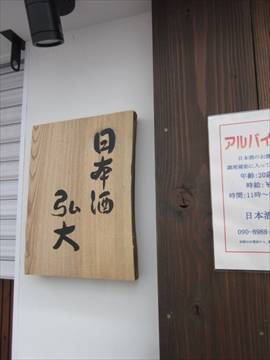 日本酒
弘大
アルバイ
日本酒のお
年齢:20歳
時給:¥
時間:11時〜
日本酒
090-8988-